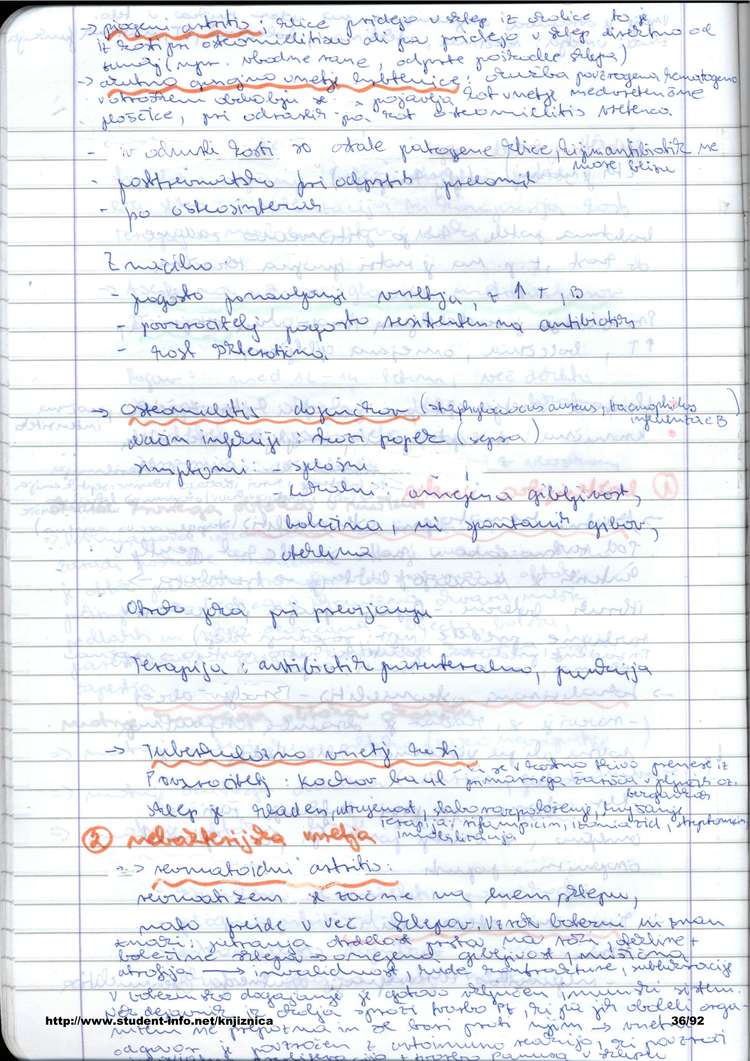 → piogeni artritis: klice pridejo v sklep iz okolice to je
iz kosti pri osteomielitisu ali pa pridejo v sklep direktno od
zunaj (npr. vbodne rane, odprte poškodbe sklepa)
→ akutno gnojno vnetje hrbtenice: okužba povzročena hematogeno
v otroškem obdobju se pojavlja kot vnetje medvretenčne
ploščice, pri odraslih pa kot osteomielitis vretenca.
- v odmrli kosti so ostale patogene klice, ki jim antibiotik ne
more blizu
- posttravmatsko pri odprtih prelomih
- po osteosintezah
Značilno
- pogosto ponavljanje vnetja, z ↑ T, B
- povzročitelj pogosto rezistenten na antibiotik
- kost sklerotična
→ Osteomielitis dojenčkov (staphylococus aureus, haemophilus
influenzae B)
način infekcije: skozi popek (sepsa)
simptomi: - splošni
- lokalni omejena gibljivost,
bolečina, ni spontanih gibov,
oteklina
Otrok joka pri previjanju
Terapija: antibiotik parenteralno, punkcija
→ Tuberkulozno vnetje kosti
Povzročitelj: Kochov bacil ki se v kostno tkivo prenese iz
primarnega žarišča v pljučih oz.
bezgavkah
sklep je hladen, utrujenost, slabo razpoloženje, hujšanje
terapija: rifampicin, izoniazid, streptomicin
imobilizacija
② nebakterijska vnetja
→ revmatoidni artritis:
revmatizem se začne na enem sklepu,
nato preide v več sklepov, vzrok bolezni ni znan
znaki: jutranja okorelost prsta na roki, otekline +
bolečine sklepa → omejena gibljivost, mišična
atrofija → invalidnost, hude kontrakture, subluksacije
V bolezensko dogajanje je gotovo vključen imunski sistem.
http://www.student-info.net/knjiznica
36/92